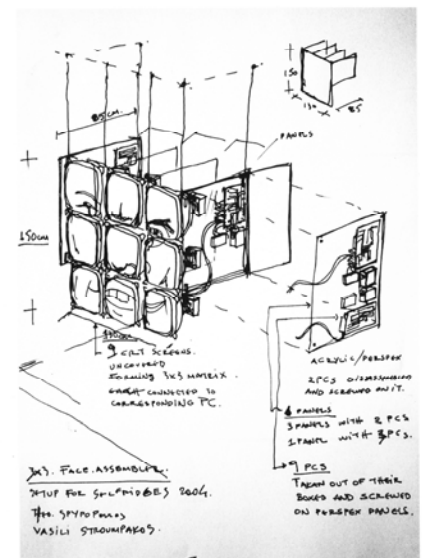 150
130
85
85cm.
PANELS
150cm
9 CRT SCREENS.
UNCOVERED
FORMING 3x3 MATRIX.
EACH CONNECTED TO
CORRESPONDING PC.
ACRYLIC/PERSPEX
2 PCS DISASSEMBLED
AND SCREWED ON IT.
4 PANELS
3 PANELS WITH 2 PCS
1 PANEL WITH 3 PCS.
9 PCS
TAKAN OUT OF THEIR
BOXES AND SCREWED
ON PERSPEX PANELS.
3x3. FACE.ASSEMBLER.
SETUP FOR SELFRIDGES 2004.
SPYROPOULOS
VASILI STROUMPAKOS.